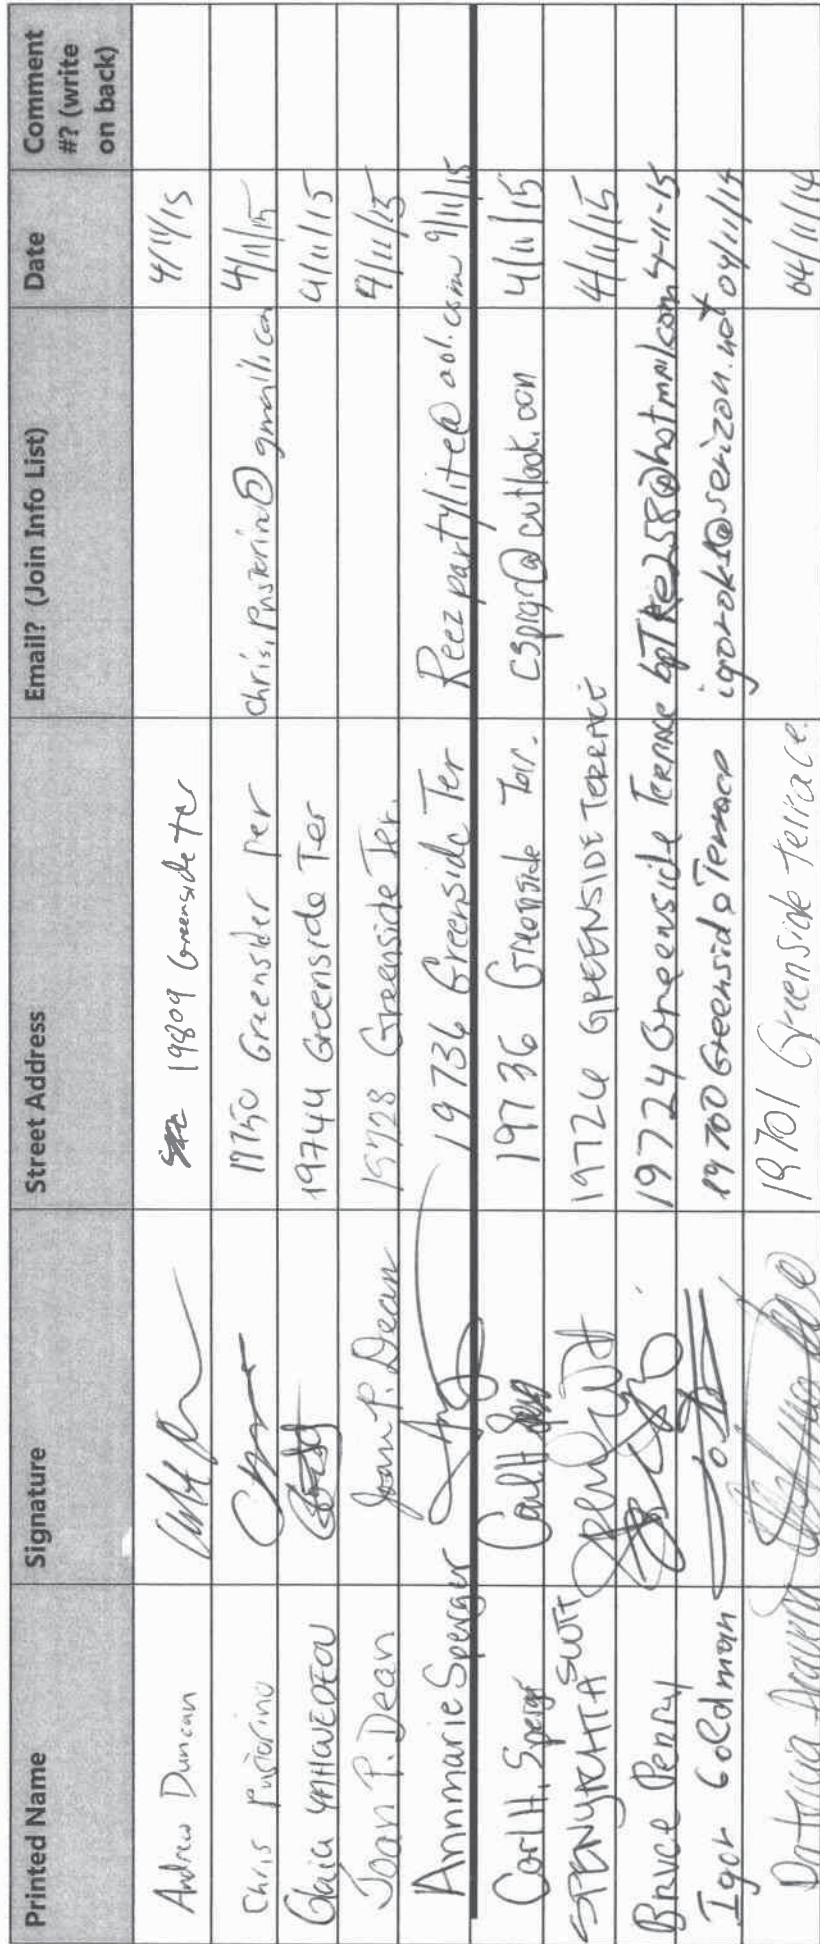 Printed Name Signature Street Address Email? (Join Info List) Date Comment #? (write on back)
Andrew Duncan 19809 Greenside ter 4/11/15
Chris Pustorino 19750 Greensider per chris.pustorino@gmail.com 4/11/15
19744 Greenside Ter 4/11/15
Joan P. Dean Joan P. Dean 19728 Greenside Ter. 4/11/15
Annmarie Sperger 19736 Greenside Ter Reezpartylite@aol.com 4/11/15
Carl H. Sperger Carl H. 19736 Greenside Terr. csprgr@outlook.com 4/11/15
19724 GREENSIDE TERRACE 4/11/15
Bruce Penry 19724 Greenside Terrace bpTKe258@hotmail.com 4-11-15
Igor Goldman 19700 Greenside Terrace 04/11/14
Patricia 19701 Greenside terrace. 04/11/14